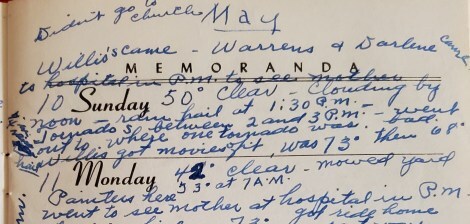 Didn't go to
church May
Willis's came - Warrens & Darlene came
MEMORANDA
to hospital in P.M. to see mother
10 Sunday 50° clear - clouding by
noon - rain hail at 1:30 P.M. -
Tornados between 2 and 3 P.M. - went
out to where one tornado was. bad.
Willis got movies of it, was 73° then 68°
11 Monday 42° clear - mowed yard
Painters here 53° at 7 A.M.
went to see mother at hospital in P.M.
73° got ride home